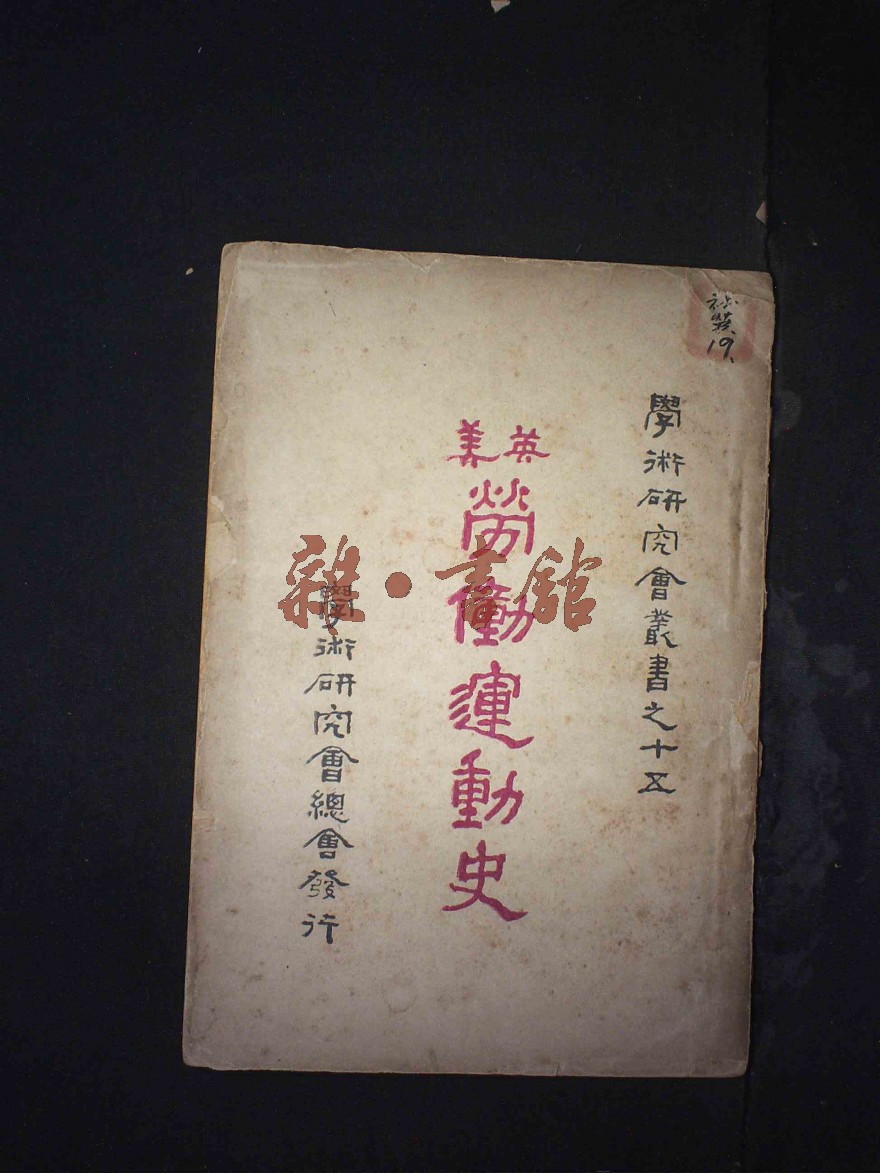 學術研究會叢書之十五
英美
勞働運動史
學術研究會總會發行
雜·書館
19.